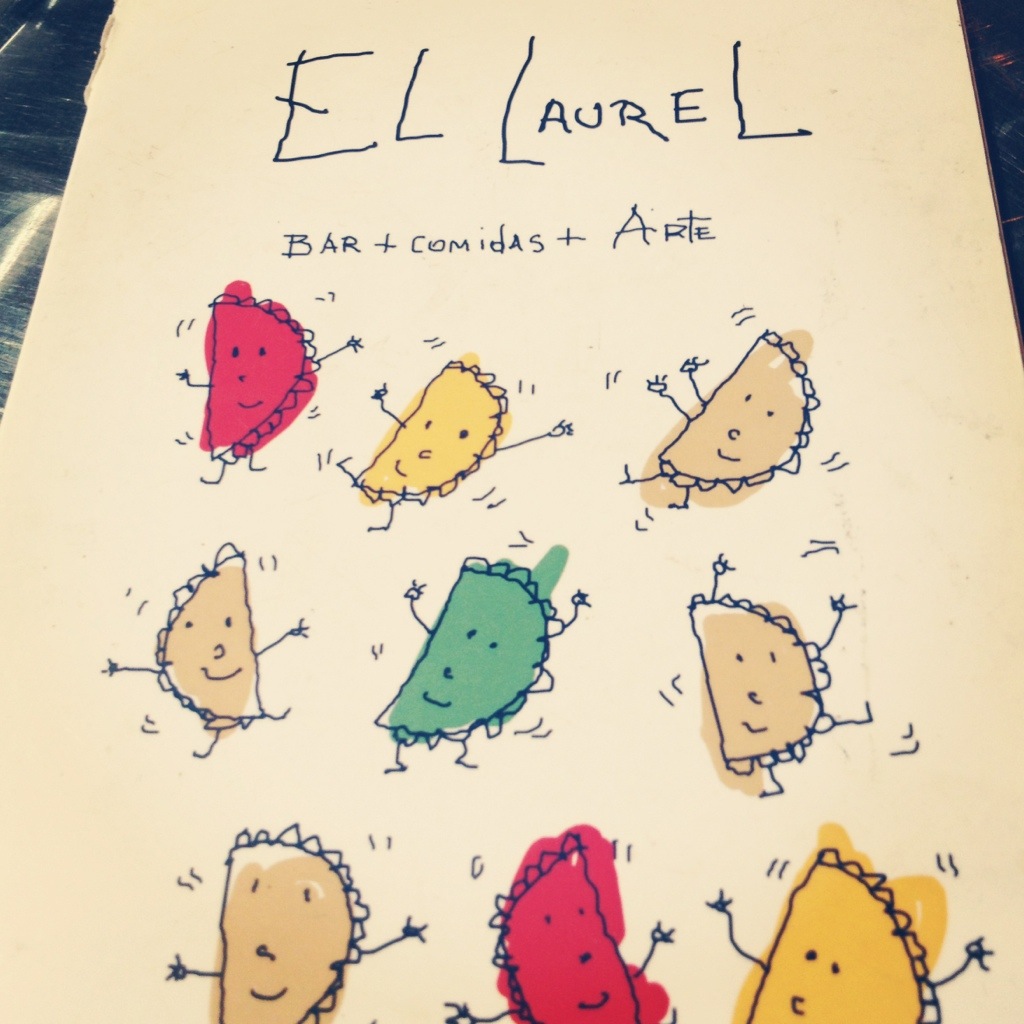 EL LAUREL
BAR + COMidAS + ARTE